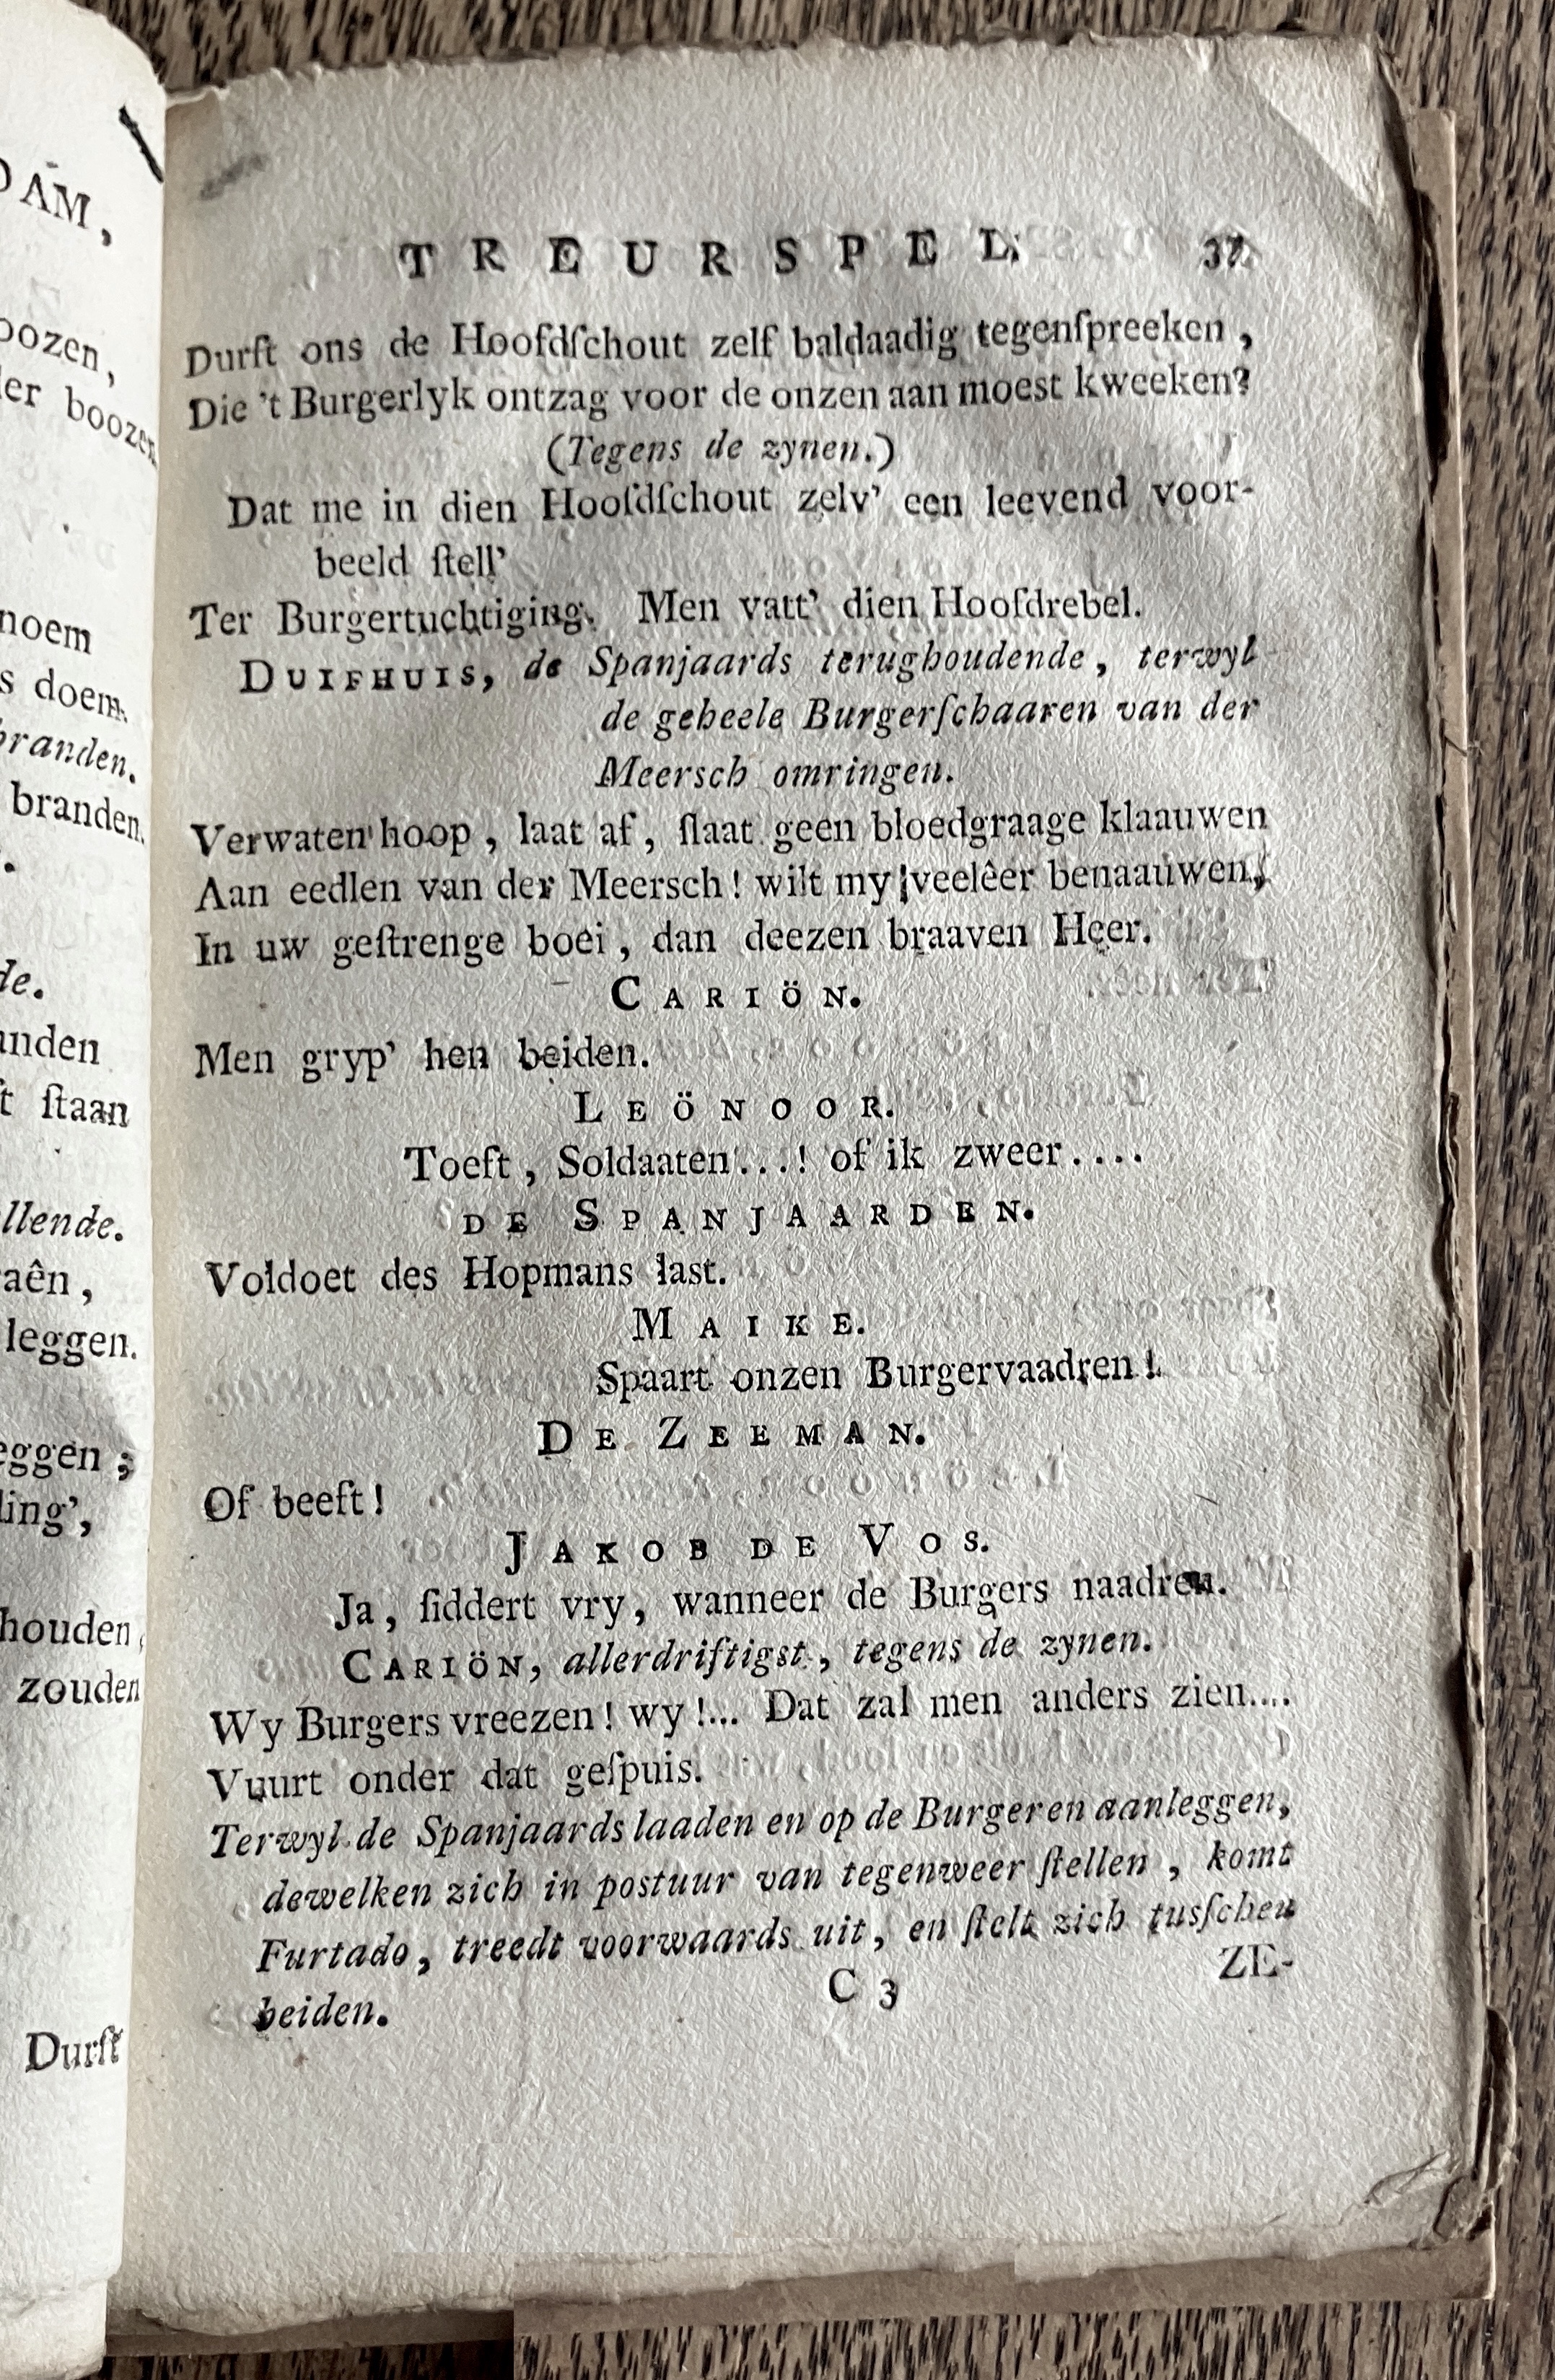 DAM,
oozen,
er boozen
noem
s doem.
branden.
branden.
de.
anden
ft ſtaan
llende.
aên,
leggen.
eggen;
ling',
houden,
zouden
Durſt
TREURSPEL. 37
Durſt ons de Hoofdſchout zelf baldaadig tegenſpreeken,
Die 't Burgerlyk ontzag voor de onzen aan moest kweeken?
(Tegens de zynen.)
Dat me in dien Hoofdſchout zelv' een leevend voor-
beeld ſtell'
Ter Burgertuchtiging. Men vatt' dien Hoofdrebel.
DUIFHUIS, de Spanjaards terughoudende, terwyl
de geheele Burgerſchaaren van der
Meersch omringen.
Verwaten hoop, laat af, ſlaat geen bloedgraage klaauwen
Aan eedlen van der Meersch! wilt my veelêer benaauwen,
In uw geſtrenge boei, dan deezen braaven Heer.
CARIÖN.
Men gryp' hen beiden.
LEÖNOOR.
Toeft, Soldaaten...! of ik zweer....
DE SPANJAARDEN.
Voldoet des Hopmans last.
MAIKE.
Spaart onzen Burgervaadren!
DE ZEEMAN.
Of beeft!
JAKOB DE VOS.
Ja, ſiddert vry, wanneer de Burgers naadren.
CARIÖN, allerdriftigst, tegens de zynen.
Wy Burgers vreezen! wy!... Dat zal men anders zien....
Vuurt onder dat geſpuis.
Terwyl de Spanjaards laaden en op de Burgeren aanleggen,
dewelken zich in postuur van tegenweer ſtellen, komt
Furtado, treedt voorwaards uit, en ſtelt zich tusſchen
beiden.
C 3 ZE-